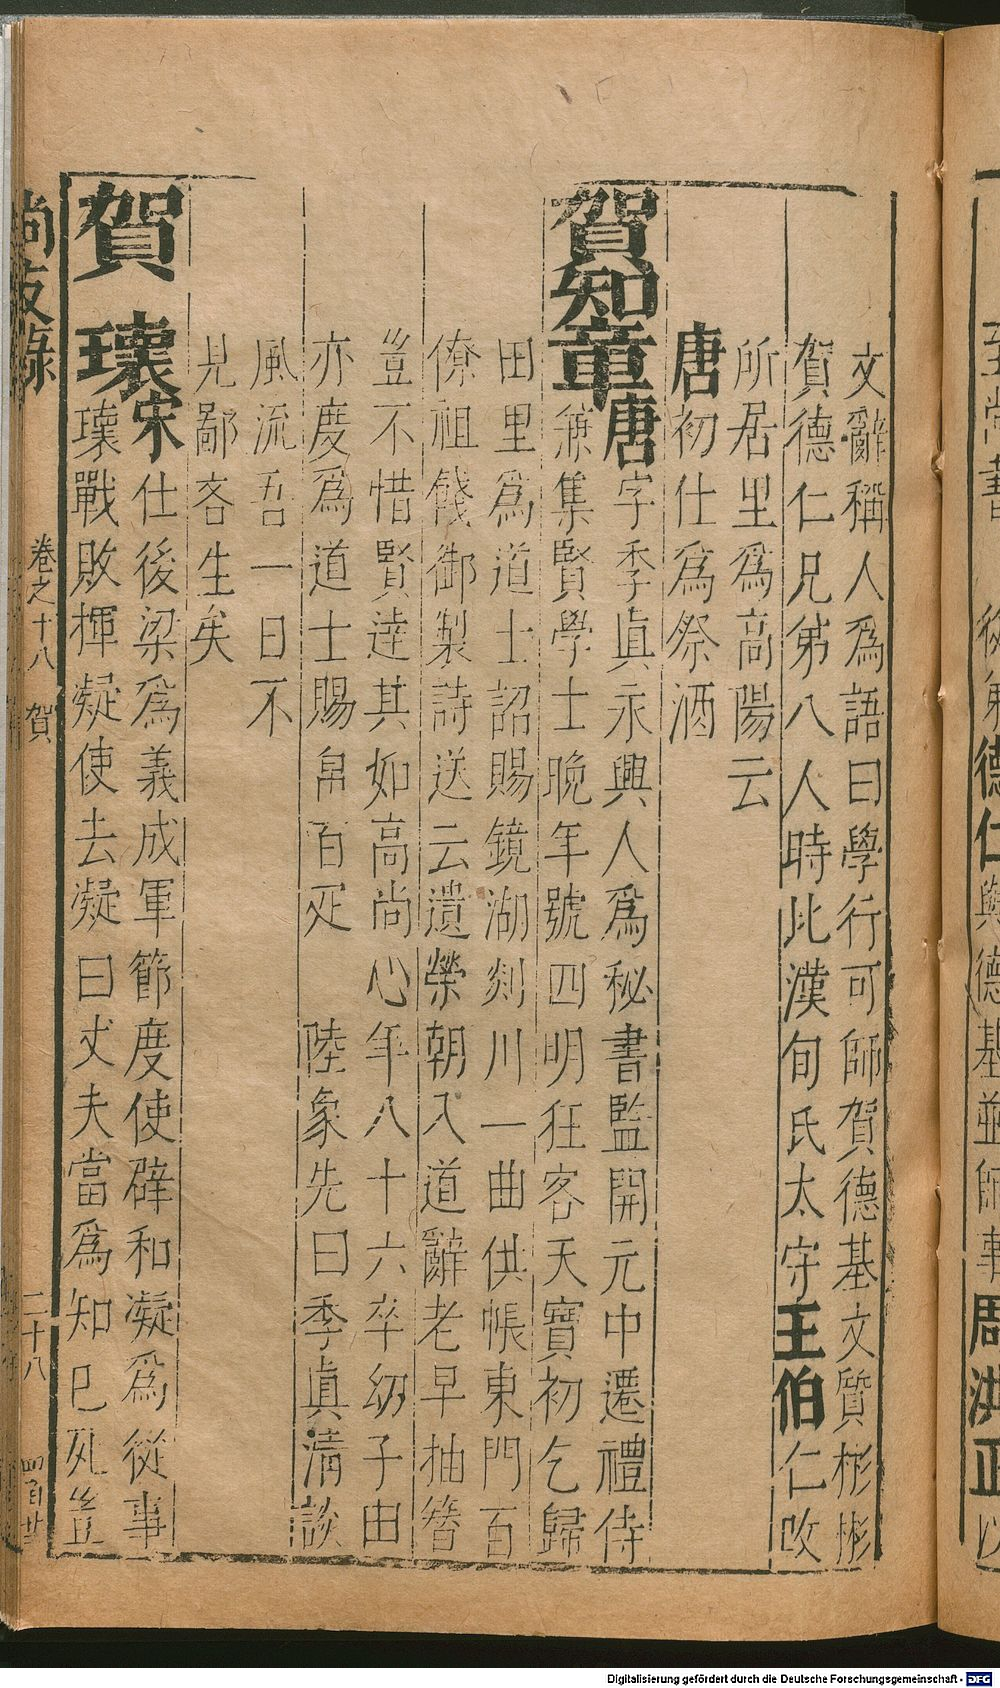 文辭稱人爲語曰學行可師賀德基文質彬彬
賀德仁兄弟八人時比漢旬氏太守王伯仁改
所居里爲高陽云
唐初仕爲祭酒
賀知章唐字季眞永興人爲秘書監開元中遷禮侍
兼集賢學士晚年號四明狂客天寶初乞歸
田里爲道士詔賜鏡湖剡川一曲供帳東門百
僚祖餞御製詩送云遺榮朝入道辭老早抽簪
豈不惜賢達其如高尚心年八十六卒幼子由
亦度爲道士賜帛百疋 陸象先曰季眞淸談
風流吾一日不
見鄙吝生矣
賀瓌宋仕後梁爲義成軍節度使辟和凝爲從事
瓌戰敗揮凝使去凝曰丈夫當爲知巳死豈
尚友錄 卷之十八 賀 二十八
德仁與德基並師事周洪正以
Digitalisierung gefördert durch die Deutsche Forschungsgemeinschaft - DFG